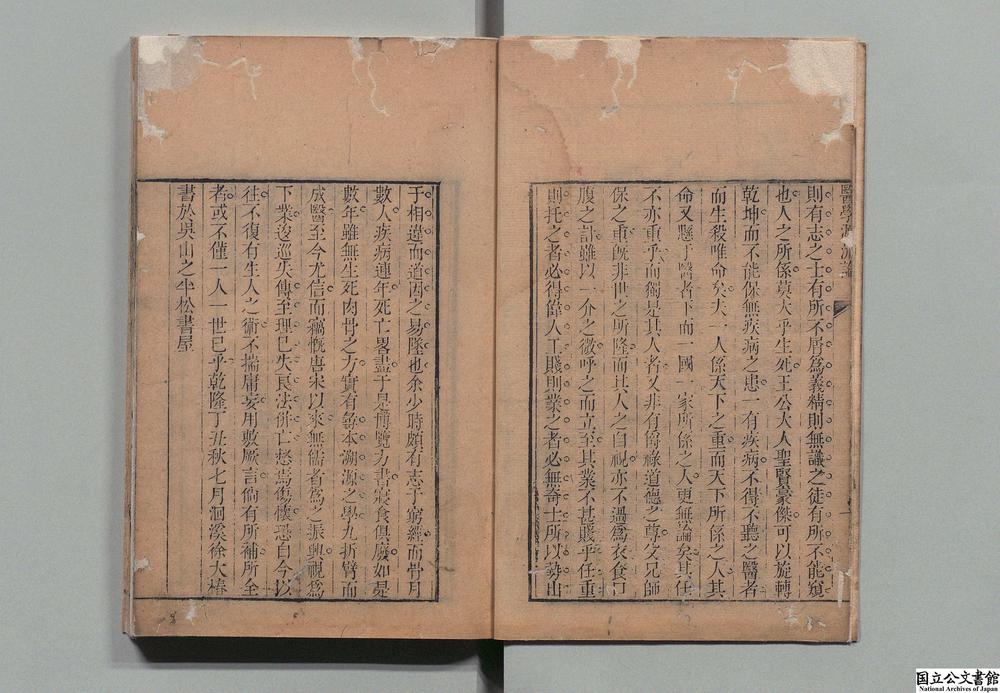 醫學源流論
則有志之士有所不屑爲義精則無識之徒有所不能窺
也人之所係莫大乎生死王公大人聖賢豪傑可以旋轉
乾坤而不能保無疾病之患一有疾病不得不聽之醫者
而生殺唯命矣夫一人係天下之重而天下所係之人其
命又懸于醫者下而一國一家所係之人更無論矣其任
不亦重乎而獨是其人者又非有爵祿道德之尊父兄師
保之重旣非世之所隆而其人之自視亦不過爲衣食口
腹之計雖以一介之微呼之而立至其業不甚賤乎任重
則托之者必得偉人工賤則業之者必無奇士所以勢出
于相違而道因之易墜也余少時頗有志于窮經而骨月
數人疾病連年死亡畧盡于是博覽方書寢食俱廢如是
數年雖無生死肉骨之方實有尋本溯源之學九折臂而
成醫至今尤信而竊慨唐宋以來無儒者爲之振興視爲
下業逡巡失傳至理已失良法倂亡惄焉傷懷恐自今以
往不復有生人之術不揣庸妄用敷厥言倘有所補所全
者或不僅一人一世已乎乾隆丁丑秋七月洄溪徐大椿
書於吳山之半松書屋
国立公文書館
National Archives of Japan